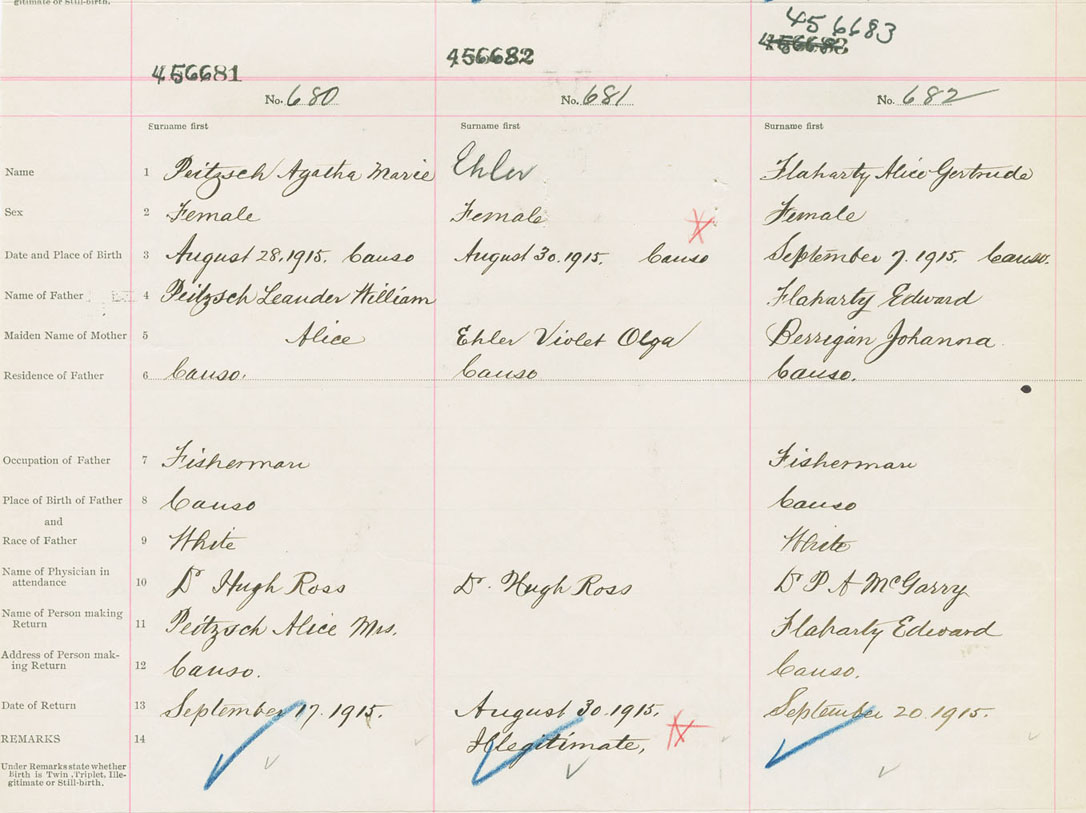 gitimate or Still-birth.
456683
456681 456682 456682
No. 680 No. 681 No. 682
Surname first Surname first Surname first
Name 1 Peitzsch Agatha Marie Ehler Flaharty Alice Gertrude
Sex 2 Female Female Female
Date and Place of Birth 3 August 28, 1915. Canso August 30, 1915. Canso September 7, 1915. Canso.
Name of Father 4 Peitzsch Leander William Flaharty Edward
Maiden Name of Mother 5 Alice Ehler Violet Olga Berrigan Johanna
Residence of Father 6 Canso. Canso Canso.
Occupation of Father 7 Fisherman Fisherman
Place of Birth of Father 8 Canso Canso
and
Race of Father 9 White White
Name of Physician in
attendance 10 Dr Hugh Ross Dr. Hugh Ross Dr P A McGarry
Name of Person making
Return 11 Peitzsch Alice Mrs. Flaharty Edward
Address of Person mak-
ing Return 12 Canso. Canso.
Date of Return 13 September 17, 1915. August 30, 1915. September 20, 1915.
REMARKS 14 Illegitimate.
Under Remarks state whether
Birth is Twin, Triplet, Ille-
gitimate or Still-birth.